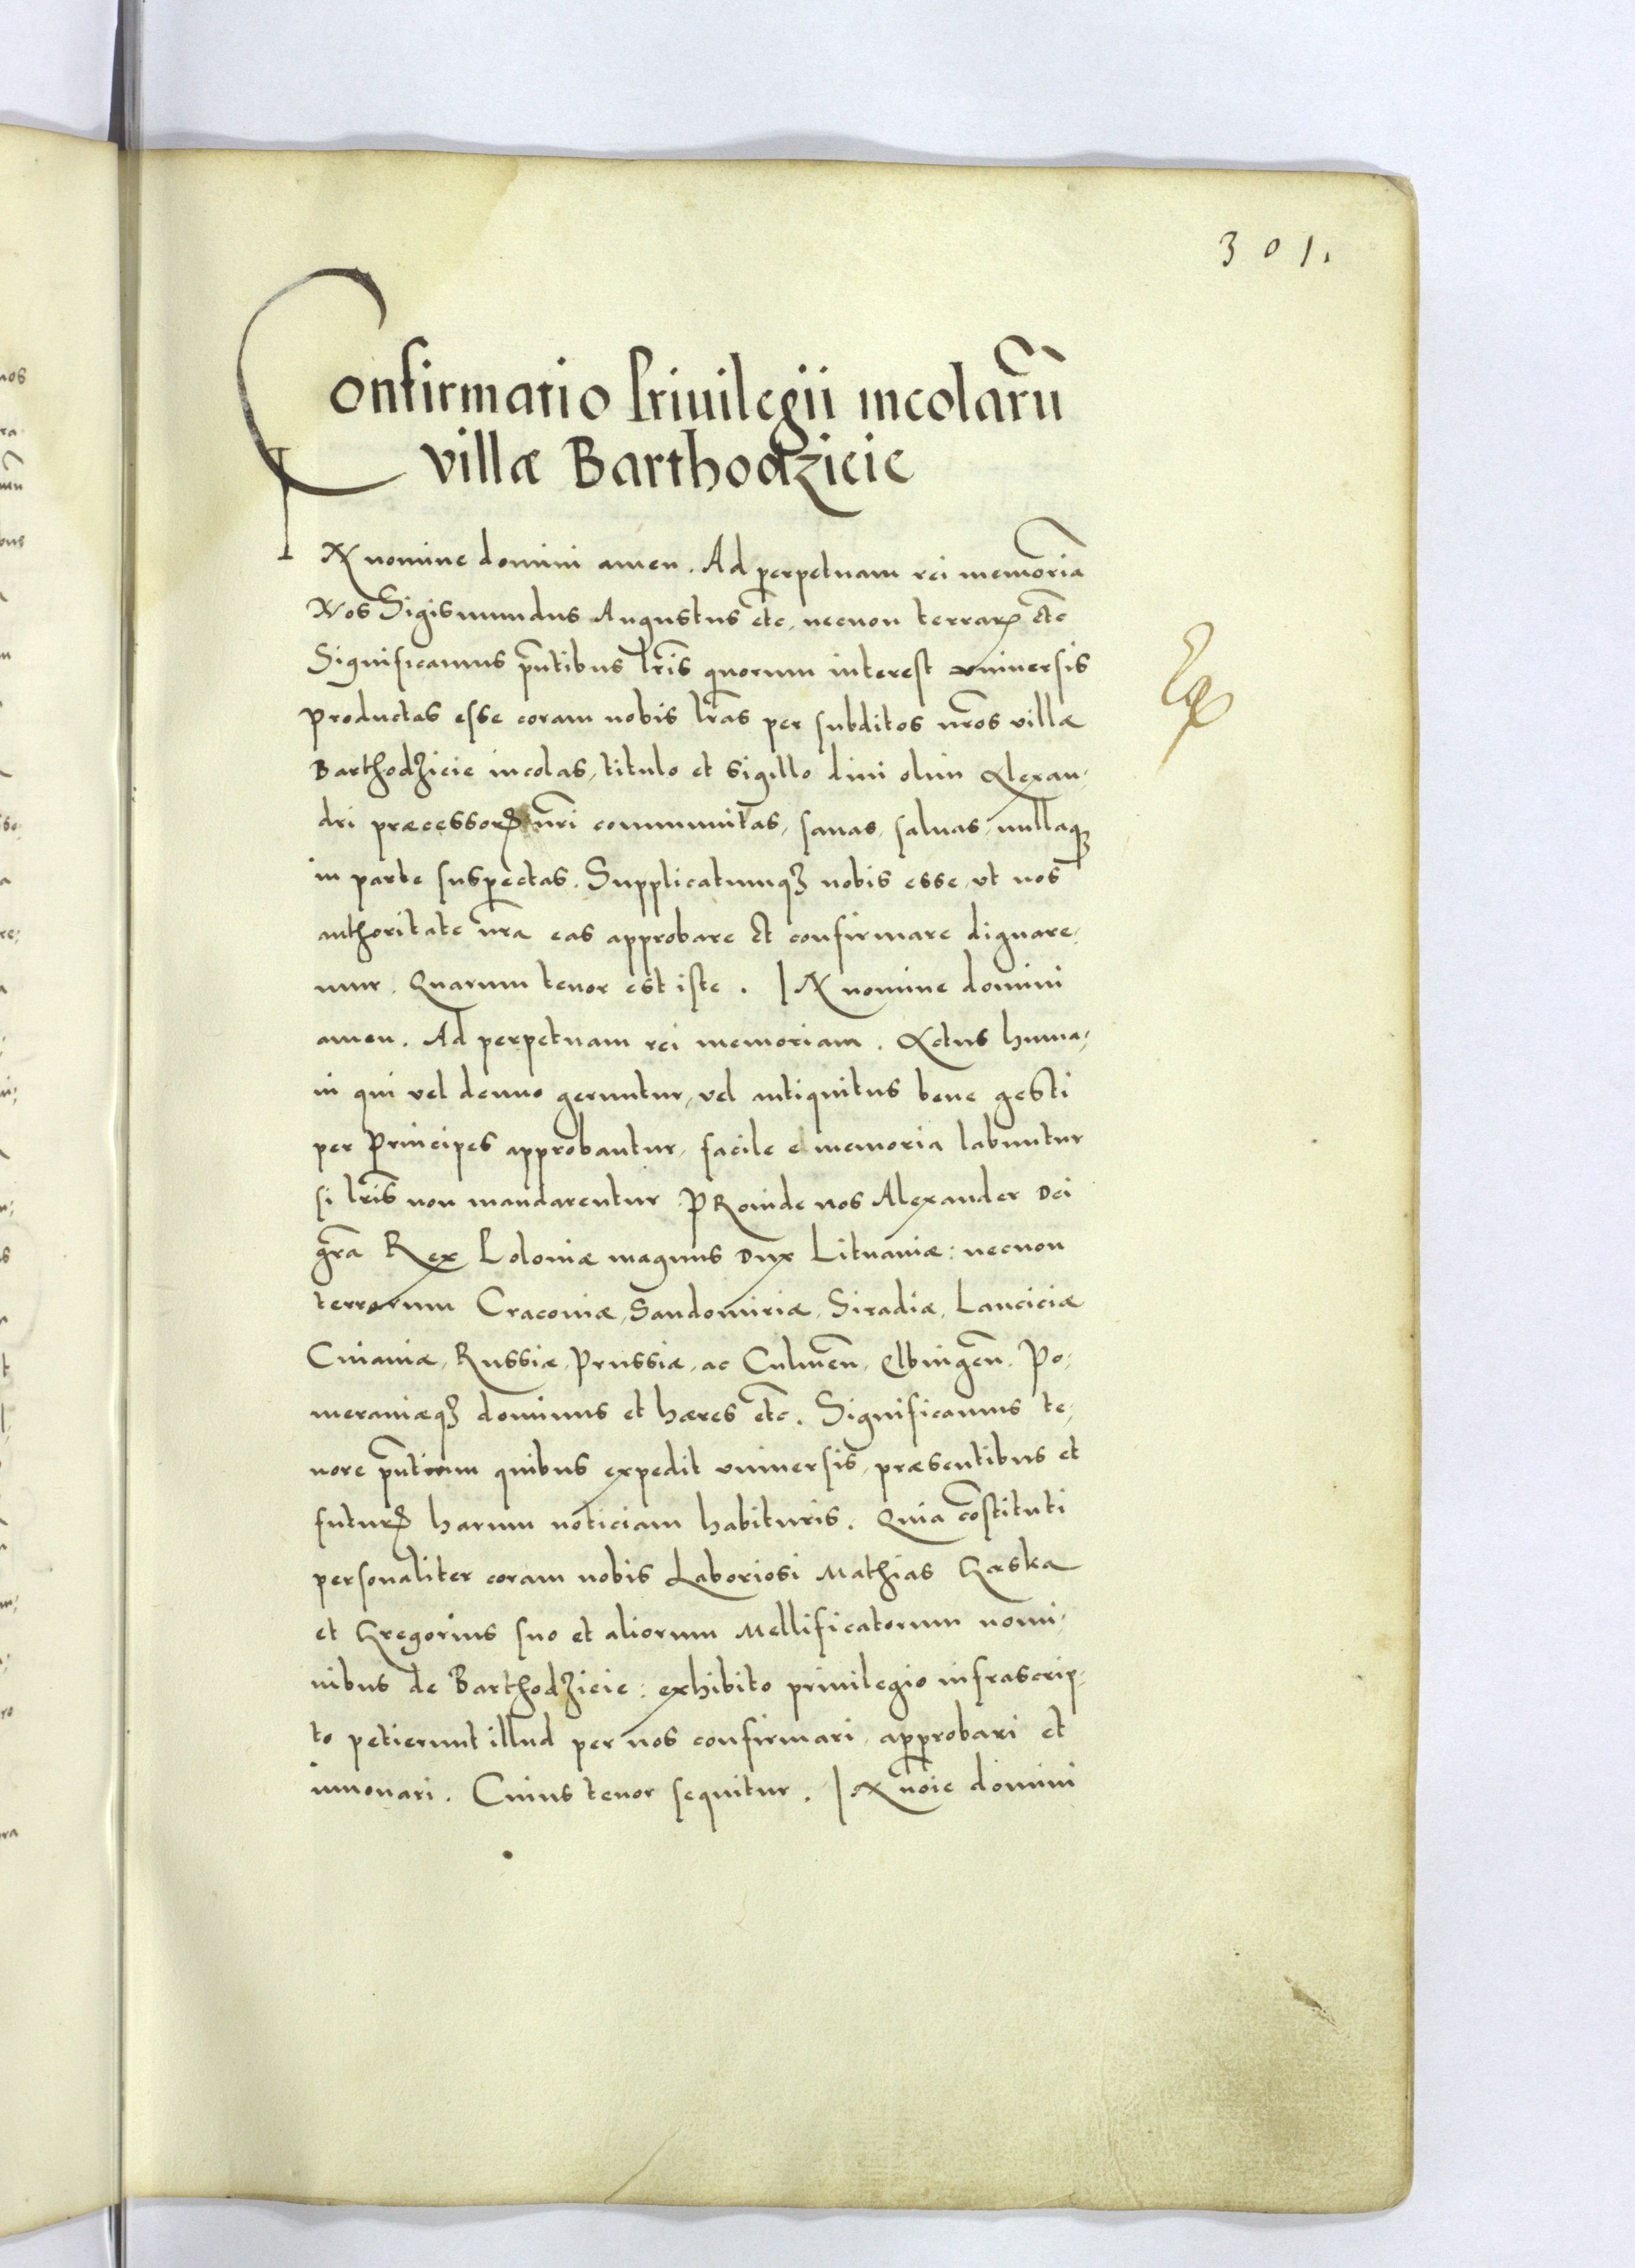 301.
Confirmatio Priuilegii incolarũ
villæ Barthodzicie
IN nomine domini amen. Ad perpetuam rei memoriã
Nos Sigismundus Augustus etc̃, necnon terrarꝝ etc̃
Significamus pñtibus lr̃is quorum interest vniuersis
productas esse coram nobis lr̃as per subditos nr̃os villæ
Barthodzicie incolas, titulo et sigillo diui olim Alexan-
dri præcessorꝭ nr̃i communitas, sanas, saluas, nullaqꝫ
in parte suspectas. Supplicatumqꝫ nobis esse, vt nos
authoritate nr̃a eas approbare et confirmare dignare-
mur. Quarum tenor est iste. IN nomine domini
amen. Ad perpetuam rei memoriam. Actus huma-
ni qui vel denuo geruntur, vel antiquitus bene gesti
per Principes approbantur, facile e memoria labuntur
si lr̃is non mandarentur. PRoinde nos Alexander Dei
gr̃a Rex Poloniæ magnus Dux Lituaniæ: necnon
terrarum Cracouiæ, Sandomiriæ, Siradiæ, Lanciciæ
Cuiauiæ, Russiæ, Prussiæ, ac Culmeñ, Elbingeñ. Po-
meraniæqꝫ dominus et hæres etc̃. Significamus te-
nore pñtium quibus expedit vniuersis, præsentibus et
futurꝭ harum noticiam habituris. Quia cõstituti
personaliter coram nobis Laboriosi Mathias Gæska
et Gregorius suo et aliorum Mellificatorum nomi-
nibus de Barthodzicie: exhibito priuilegio infrascrip-
to petierunt illud per nos confirmari, approbari et
innouari. Cuius tenor sequitur. IN nõie domini